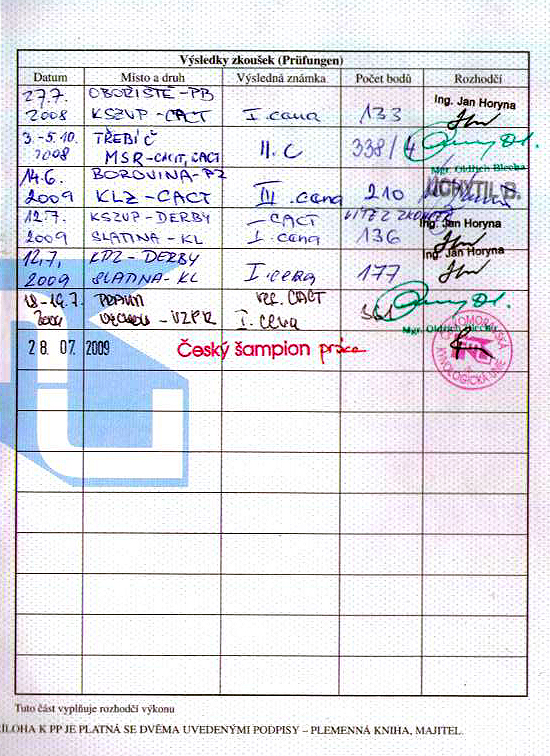 Výsledky zkoušek (Prüfungen)
Datum Místo a druh Výsledná známka Počet bodů Rozhodčí
27.7. OBOŘIŠTĚ-PB Ing. Jan Horyna
2008 KSZVP-CACT I. cena 133
3.-5.10. TŘEBÍČ
2008 MSR-CACIT, CACT II. C 338/4
Mgr. Oldřich Blecha
14.6. BOROVINA-PZ
2009 KLZ-CACT III. cena 210
12.7. KSZVP-DERBY -CACT VÍTĚZ ZKOUŠEK Ing. Jan Horyna
2009 SLATINA-KL I. cena 136
12.7. KDZ-DERBY Ing. Jan Horyna
2009 SLATINA-KL I. cena 177
18-19.7. res. CACT
2009 - VZPR I. cena 361
Mgr. Oldřich Blecha
28. 07. 2009 Český šampion práce
ČESKOMORAVSKÁ KYNOLOGICKÁ UNIE
Tuto část vyplňuje rozhodčí výkonu
ŘÍLOHA K PP JE PLATNÁ SE DVĚMA UVEDENÝMI PODPISY – PLEMENNÁ KNIHA, MAJITEL.